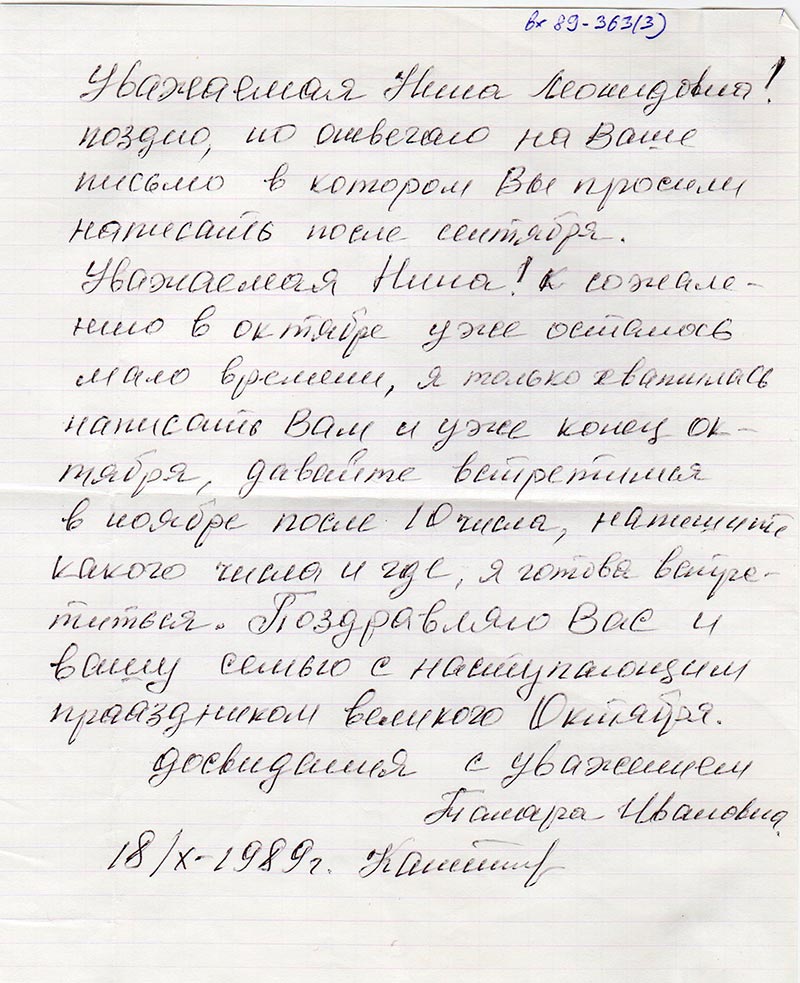 вх 89-363(3)
Уважаемая Нина Леонидовна!
поздно, но отвечаю на Ваше
письмо в котором Вы просили
написать после сентября.
Уважаемая Нина! к сожале-
нию в октябре уже осталось
мало времени, я только хватилась
написать Вам и уже конец ок-
тября, давайте встретимся
в ноябре после 10 числа, напишите
какого числа и где, я готова встре-
титься. Поздравляю Вас и
вашу семью с наступающим
праздником великого Октября.
досвидания с уважением
Тамара Ивановна
18/X-1989г.